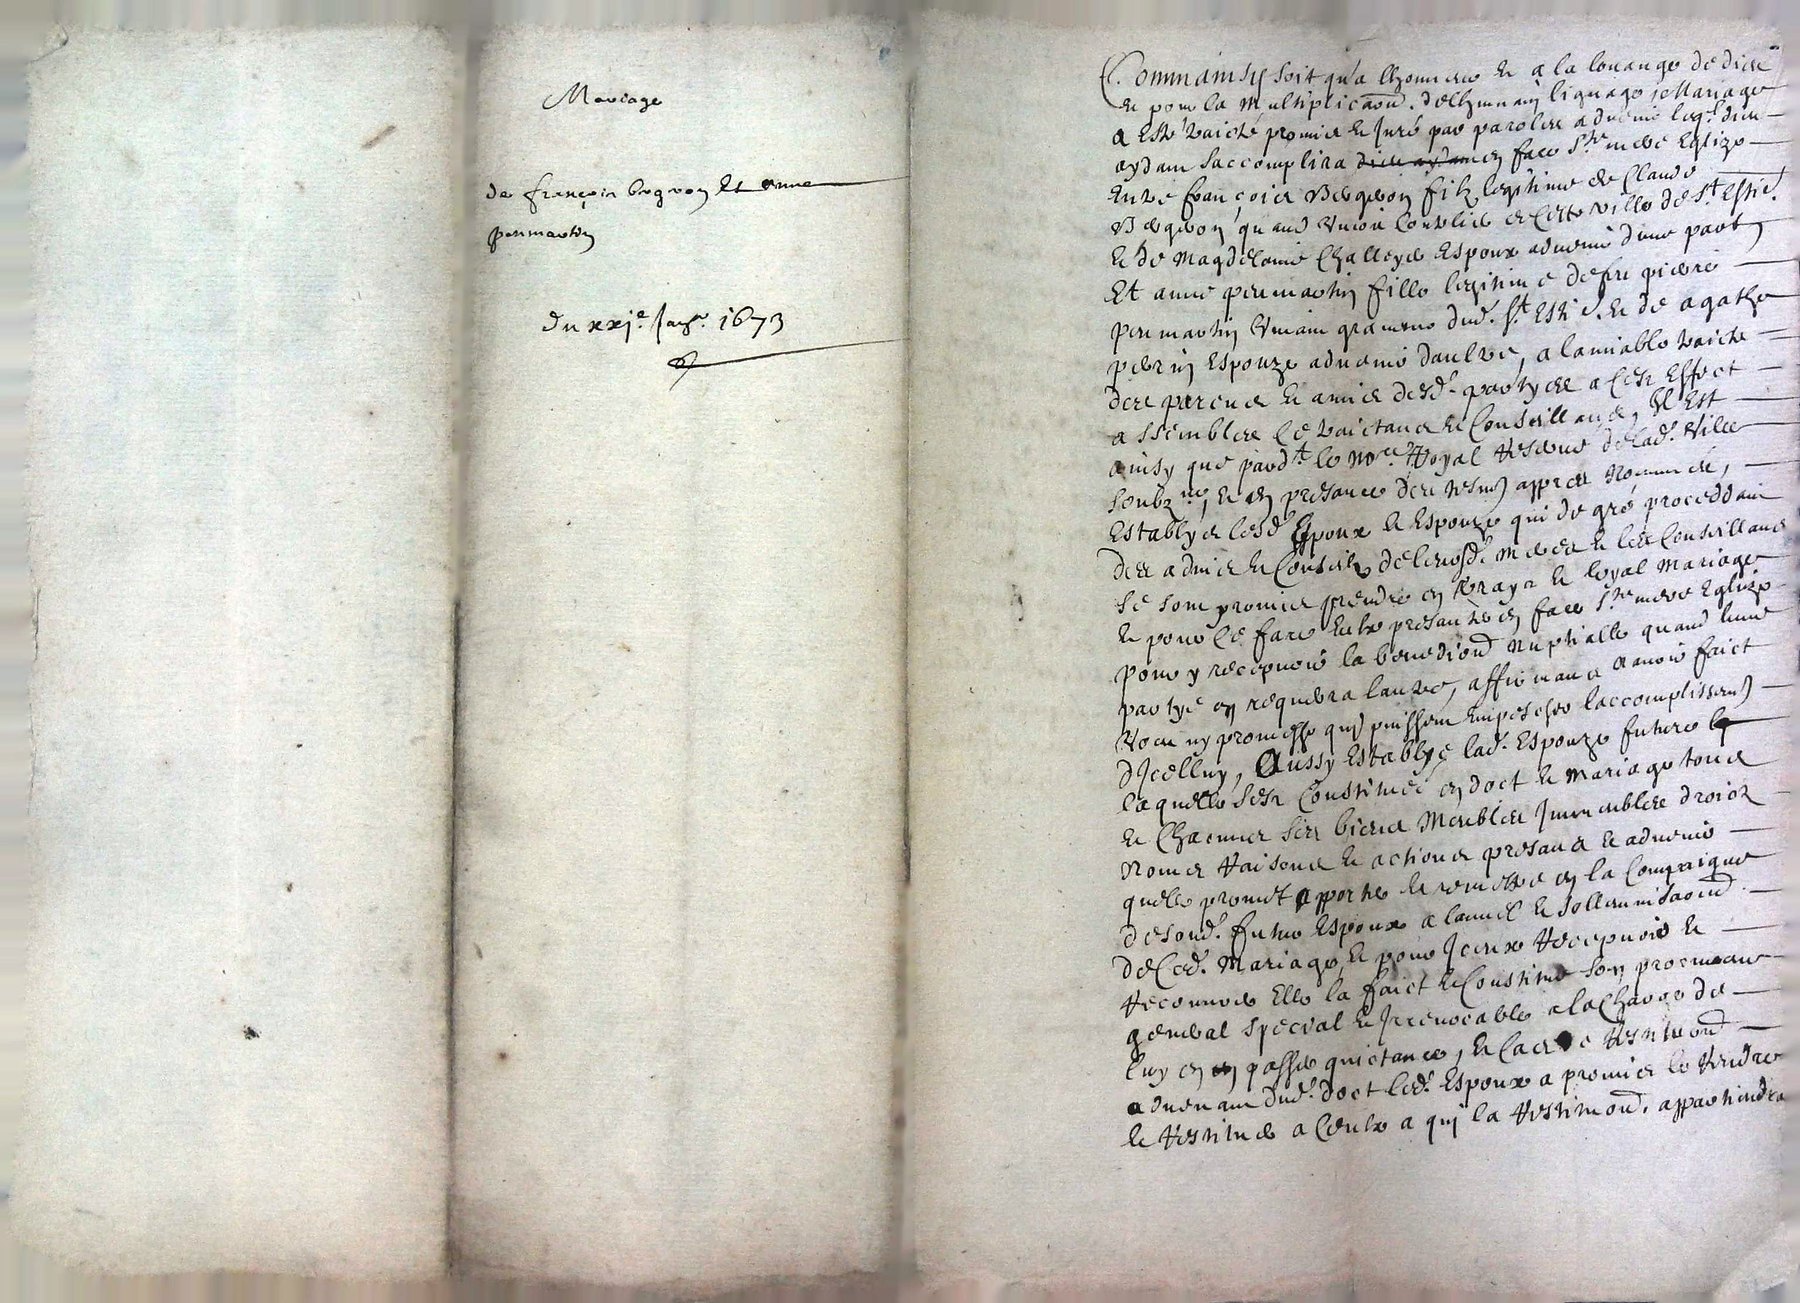 Mariage
de françois bergeron et anne
permartin
du xxje. Janr. 1673
Comm ainsy soit qu'a lhonneur et a la louange de dieu
et pour la multiplicaon. de lhumain lignage Mariage
a esté traicté promis et juré par parolles a duenir leql. dieu
aydant saccomplira dieu aydant en face Ste mere Eglize
Entre françois Bergeron filz legitime de Claude
Bergeron quand vivoit de ceste ville de St. Estie.
et de Magdelaine Challeyer Espoux aduenir dune part
Et anne permartin fille legitime de feu pierre
permartin vivant dud. St. Estie. et de agathe
perrin Espouze aduenir daultre, a lamiable traicte
des parens et amis desd. partyes a cest Effect
assembles Ce traictans et Conseillans, Et Est
ainsy que pardt. le nore. Royal reservé de lad. Ville
soubzné, et en presance des tesmoins appres nommes,
Establys lesd. Espoux et Espouze qui de gré proceddant
des aduis et Conseilz de leursd. meres et des Conseillans
se sont promis prendre en vraye et loyal Mariage
et pour ce faire se presanter en face Ste mere Eglize
pour y recepuoir la benedion nuptialle quand lune
partye en requerra lautre, affirmans navoir faict
Voeu ny promesse qui puissent Empescher laccomplissent
dIcelluy, Aussy Establye lad. Espouze future
laquelle sest Constituée en doct et mariage tous
et Chacuns ses biens Meubles Immeubles droictz
noms Raisons et actions presans et aduenir
quelle promet apporter et remettre en la Compaigne
de sond. futur Espoux a lamiel et sollemnisaon
de Ced. Mariage, et pour Iceux Recepuoir et
Recouvrer Elle la faict et Constitué son procureur
general special et Irrevocable a la Charge de
luy en passer quictance, et cas de restituon
aduenant dud. doct led. Espoux a promis le Rendre
et Restituer a Ceulx a qui la Restituon. appartiendra